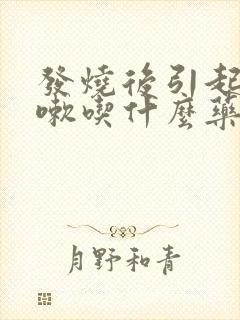 發燒後引起
嗽喫什麼藥
月野和青